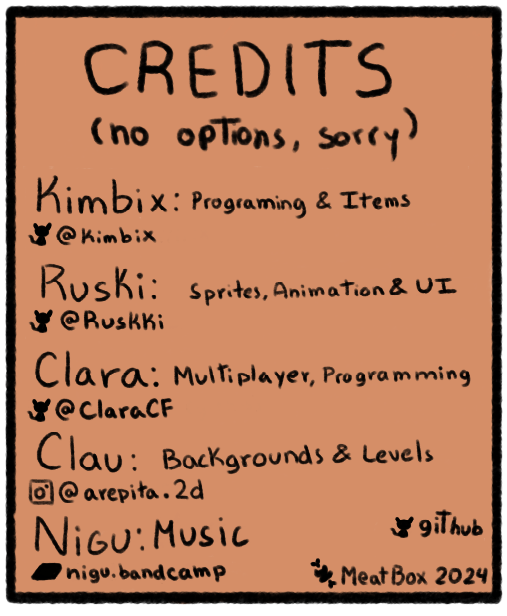 CREDITS
(no options, sorry)
Kimbix: Programing & Items
@Kimbix
Ruski: Sprites, Animation & UI
@Ruskki
Clara: Multiplayer, Programming
@ClaraCF
Clau: Backgrounds & Levels
@arepita.2d
Nigu: Music
github
nigu.bandcamp
MeatBox 2024